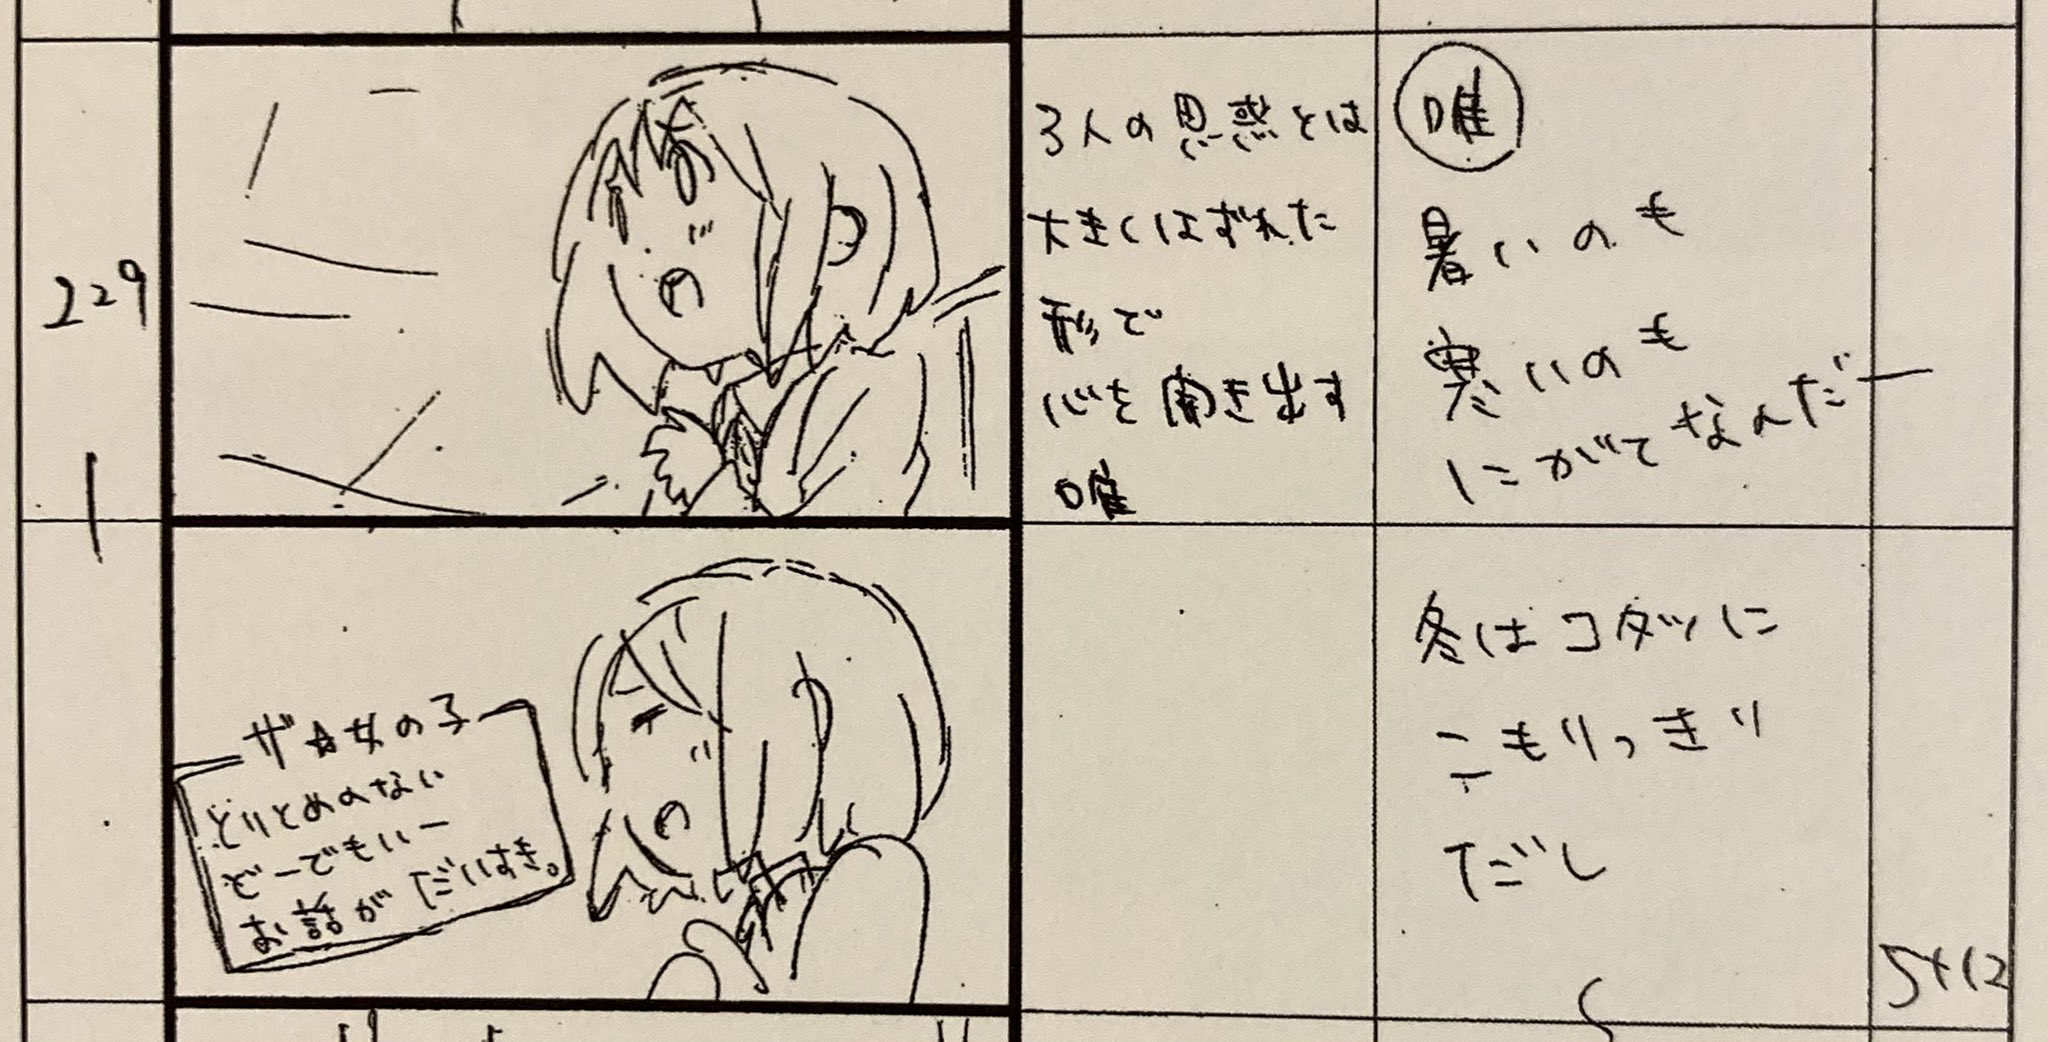 229
1
3人の思惑とは
大きくはずれた
形で
心を開き出す
唯
唯
暑いのも
寒いのも
にがてなんだー
ザ☆女の子
とりとめのない
どーでもいー
お話がだいすき。
冬はコタツに
こもりっきり
だし
5+12